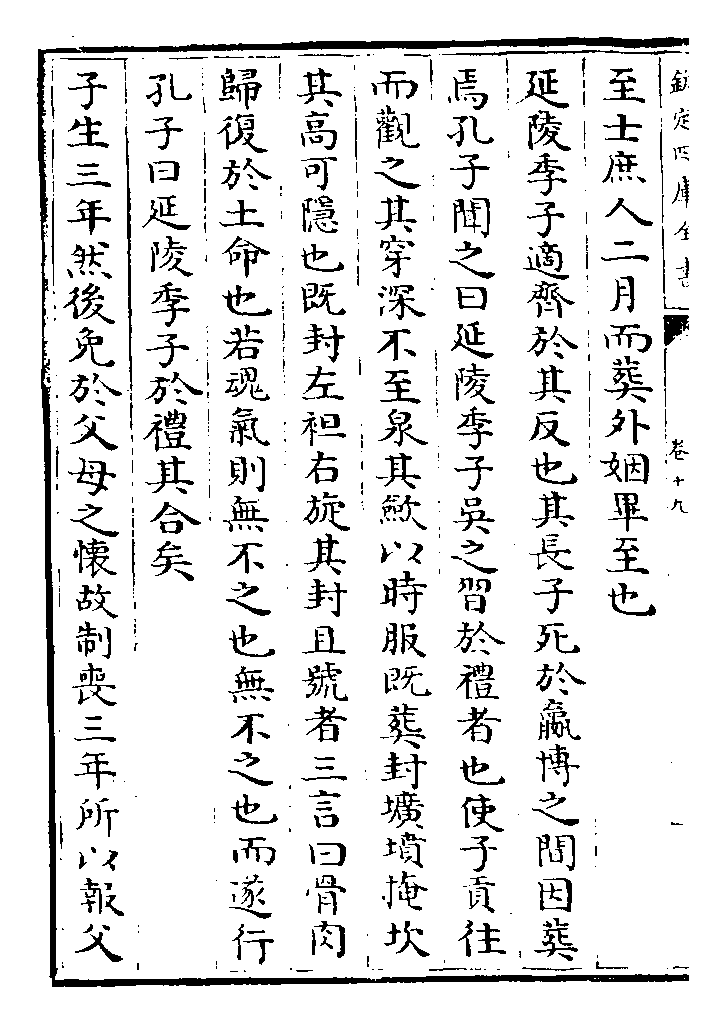 欽定四庫全書
卷十九
至士庶人二月而葬外姻畢至也
延陵季子適齊於其反也其長子死於嬴博之間因葬
焉孔子聞之曰延陵季子吳之習於禮者也使子貢往
而觀之其穿深不至泉其歛以時服既葬封壙墳掩坎
其高可隱也既封左袒右旋其封且號者三言曰骨肉
歸復於土命也若魂氣則無不之也無不之也而遂行
孔子曰延陵季子於禮其合矣
子生三年然後免於父母之懷故制喪三年所以報父